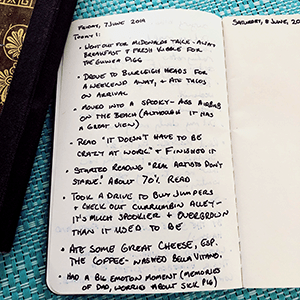 FRIDAY, 7 JUNE 2019
TODAY I:
• WENT OUT FOR MCDONALDS TAKE-AWAY
BREAKFAST & FRESH KIBBLE FOR
THE GUINEA PIGS
• DROVE TO BURLEIGH HEADS FOR
A WEEKEND AWAY, & ATE TACOS
ON ARRIVAL
• MOVED INTO A SPOOKY-ASS AIRBNB
ON THE BEACH (ALTHOUGH IT HAS
A GREAT VIEW)
• READ "IT DOESN'T HAVE TO BE
CRAZY AT WORK" & FINISHED IT
• STARTED READING "REAL ARTISTS DON'T
STARVE." ABOUT 70% READ
• TOOK A DRIVE TO BUY JUMPERS
& CHECK OUT CURRUMBIN ALLEY-
IT'S MUCH SPOOKIER & OVERGROWN
THAN IT USED TO BE
• ATE SOME GREAT CHEESE, ESP.
THE COFFEE-WASHED BELLA VITANO.
• HAD A BIG EMOTION MOMENT (MEMORIES
OF DAD, WORRIED ABOUT SICK PIG)
SATURDAY, 8 JUNE, 20